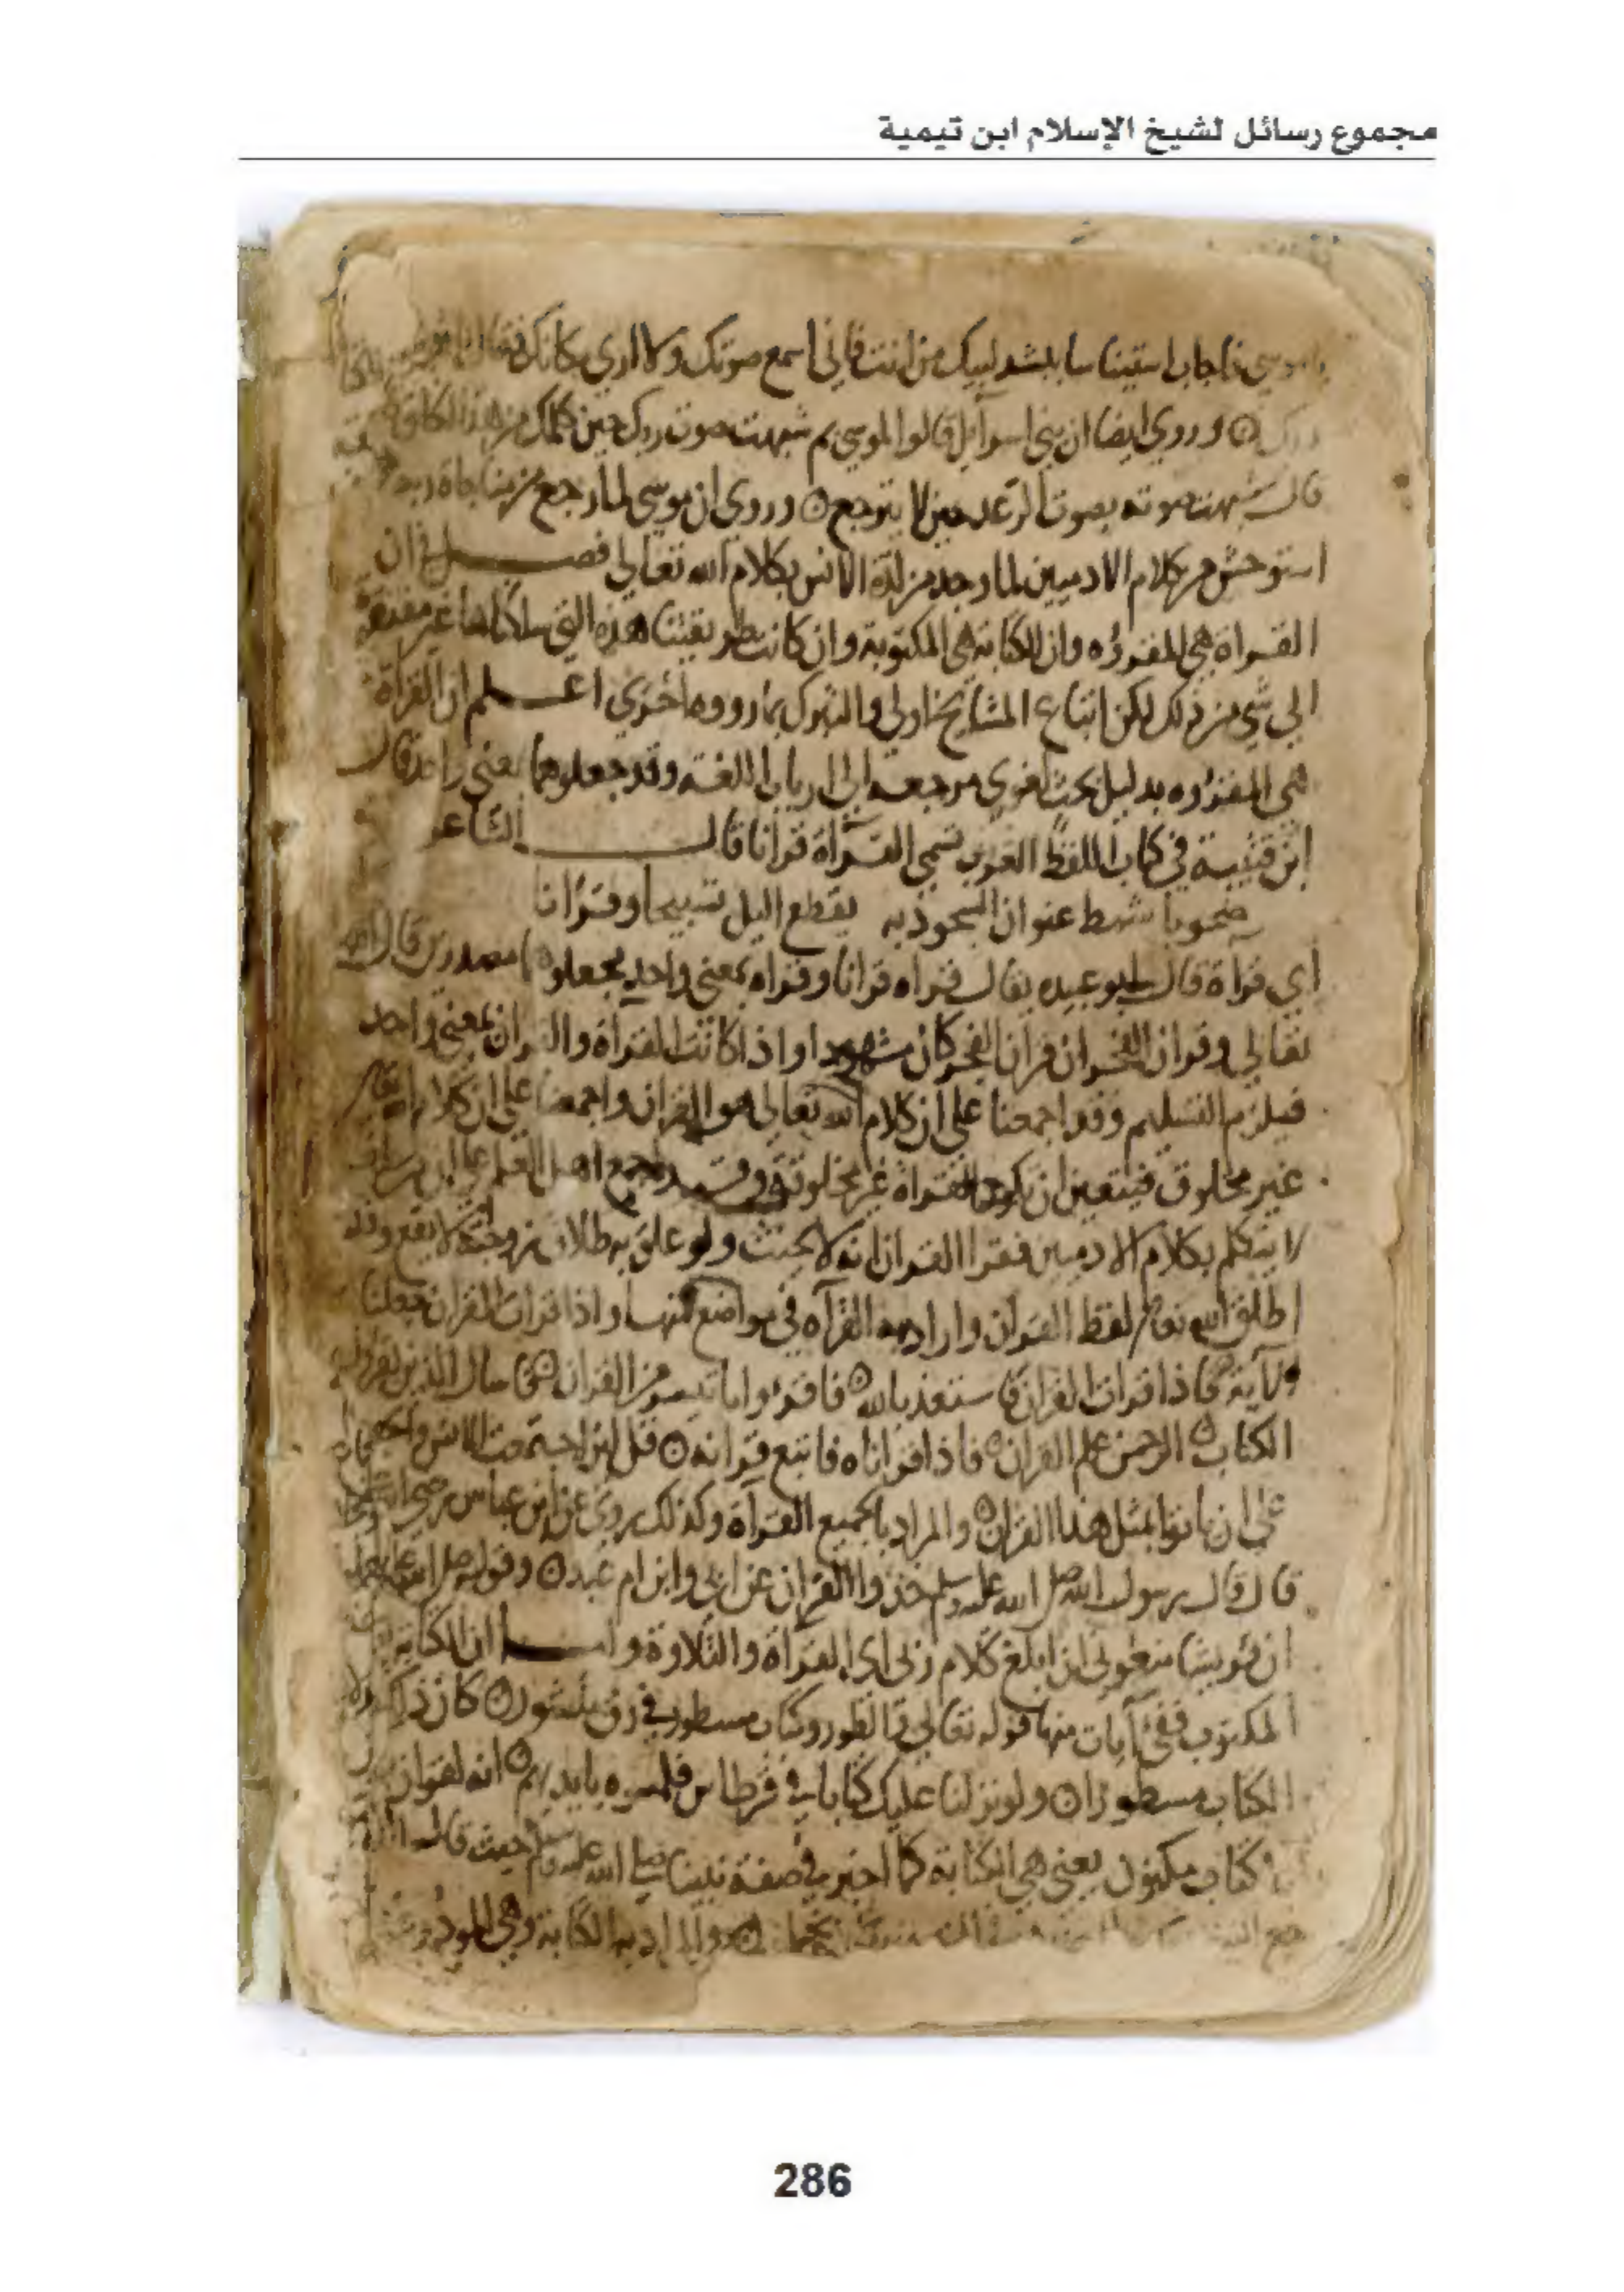 مجموع رسائل لشيخ الإسلام ابن تيمية
فاجاب استيناسا بلشد لبيك من انت فاني اسمع صوتك ولا اري مكانك فقال انا
وروي ايضا ان بني اسرايل قالوا لموسي بم شبهت صوت ربك حين كلمك من هذا
قال شبهت صوته بصوت الرعد حين لا يترجع وروي ان موسي لما رجع من مناجاة ربه
استوحش من كلام الادميين لما وجد من لذة الانس بكلام الله تعالي فصل في ان
القراة هي المقروه وان الكتابة هي المكتوبة وان كانت طريقتنا هذه التي سلكناها غير مفتقرة
الي شي من ذلك لكن اتباع المشايخ اولي والتبرك بما رووه احري اعلم ان القراة
هي المقروه بدليل بحث لغوي مرجعه الي ارباب اللغة وقد جعلوهما بمعني واحد قال
ابن قتيبة في كتاب اللفظ العرب تسمي القرآة قرانا قال الشاعر
ضحوبا شمط عنوان السجود به يقطع اليل تسبيحا وقرانا
اي قرآة قال ابو عبيده يقال قراه قرانا وقراه بمعني واحد يجعلوهما مصدرين قال الله
تعالي وقران الفجر ان قران الفجر كان مشهودا واذا كانت القرآة والقران بمعني واحد
فيلزم التسليم وقد اجمعنا علي ان كلام الله تعالي هو القران واجمعنا علي ان كلام الله
غير مخلوق فيتعين ان تكون القراة غير مخلوقة وقد اجمع اهل العلم علي ان من
لا يتكلم بكلام الادميين فقرا القران انه لا يحنث ولو علق به طلاق زوجته لا يقع وقد
اطلق الله تعالى لفظ القران واراد به القرآه في مواضع منها واذا قرات القران جعلنا
الآية فاذا قرات القران فاستعذ بالله فاقرءوا ما تيسر من القران فاسال الذين يقرءون
الكتاب الرحمن علم القران فاذا قراناه فاتبع قرانه قل لين اجتمعت الانس والجن
علي ان ياتوا بمثل هذا القران والمراد بالجميع القرآة وكذلك روي عن ابن عباس رضي الله
قال قال رسول الله صلى الله عليه وسلم خذوا القران عن ابي وابن ام عبد وقوله صلى الله عليه
ان قريشا منعوني ان ابلغ كلام ربي اي القرآة والتلاوة واما ان الكتابة
المكتوب ففي آيات منها قوله تعالي والطور وكتاب مسطور في رق منشور كان ذلك
الكتاب مسطورا ولو نزلنا عليك كتابا في قرطاس فلمسوه بايديهم انه لقران
كتاب مكنون يعني هي الكتابة كما اخبر في صفة نبينا صلى الله عليه وسلم حيث قال
والمراد به الكتابة وهي
286